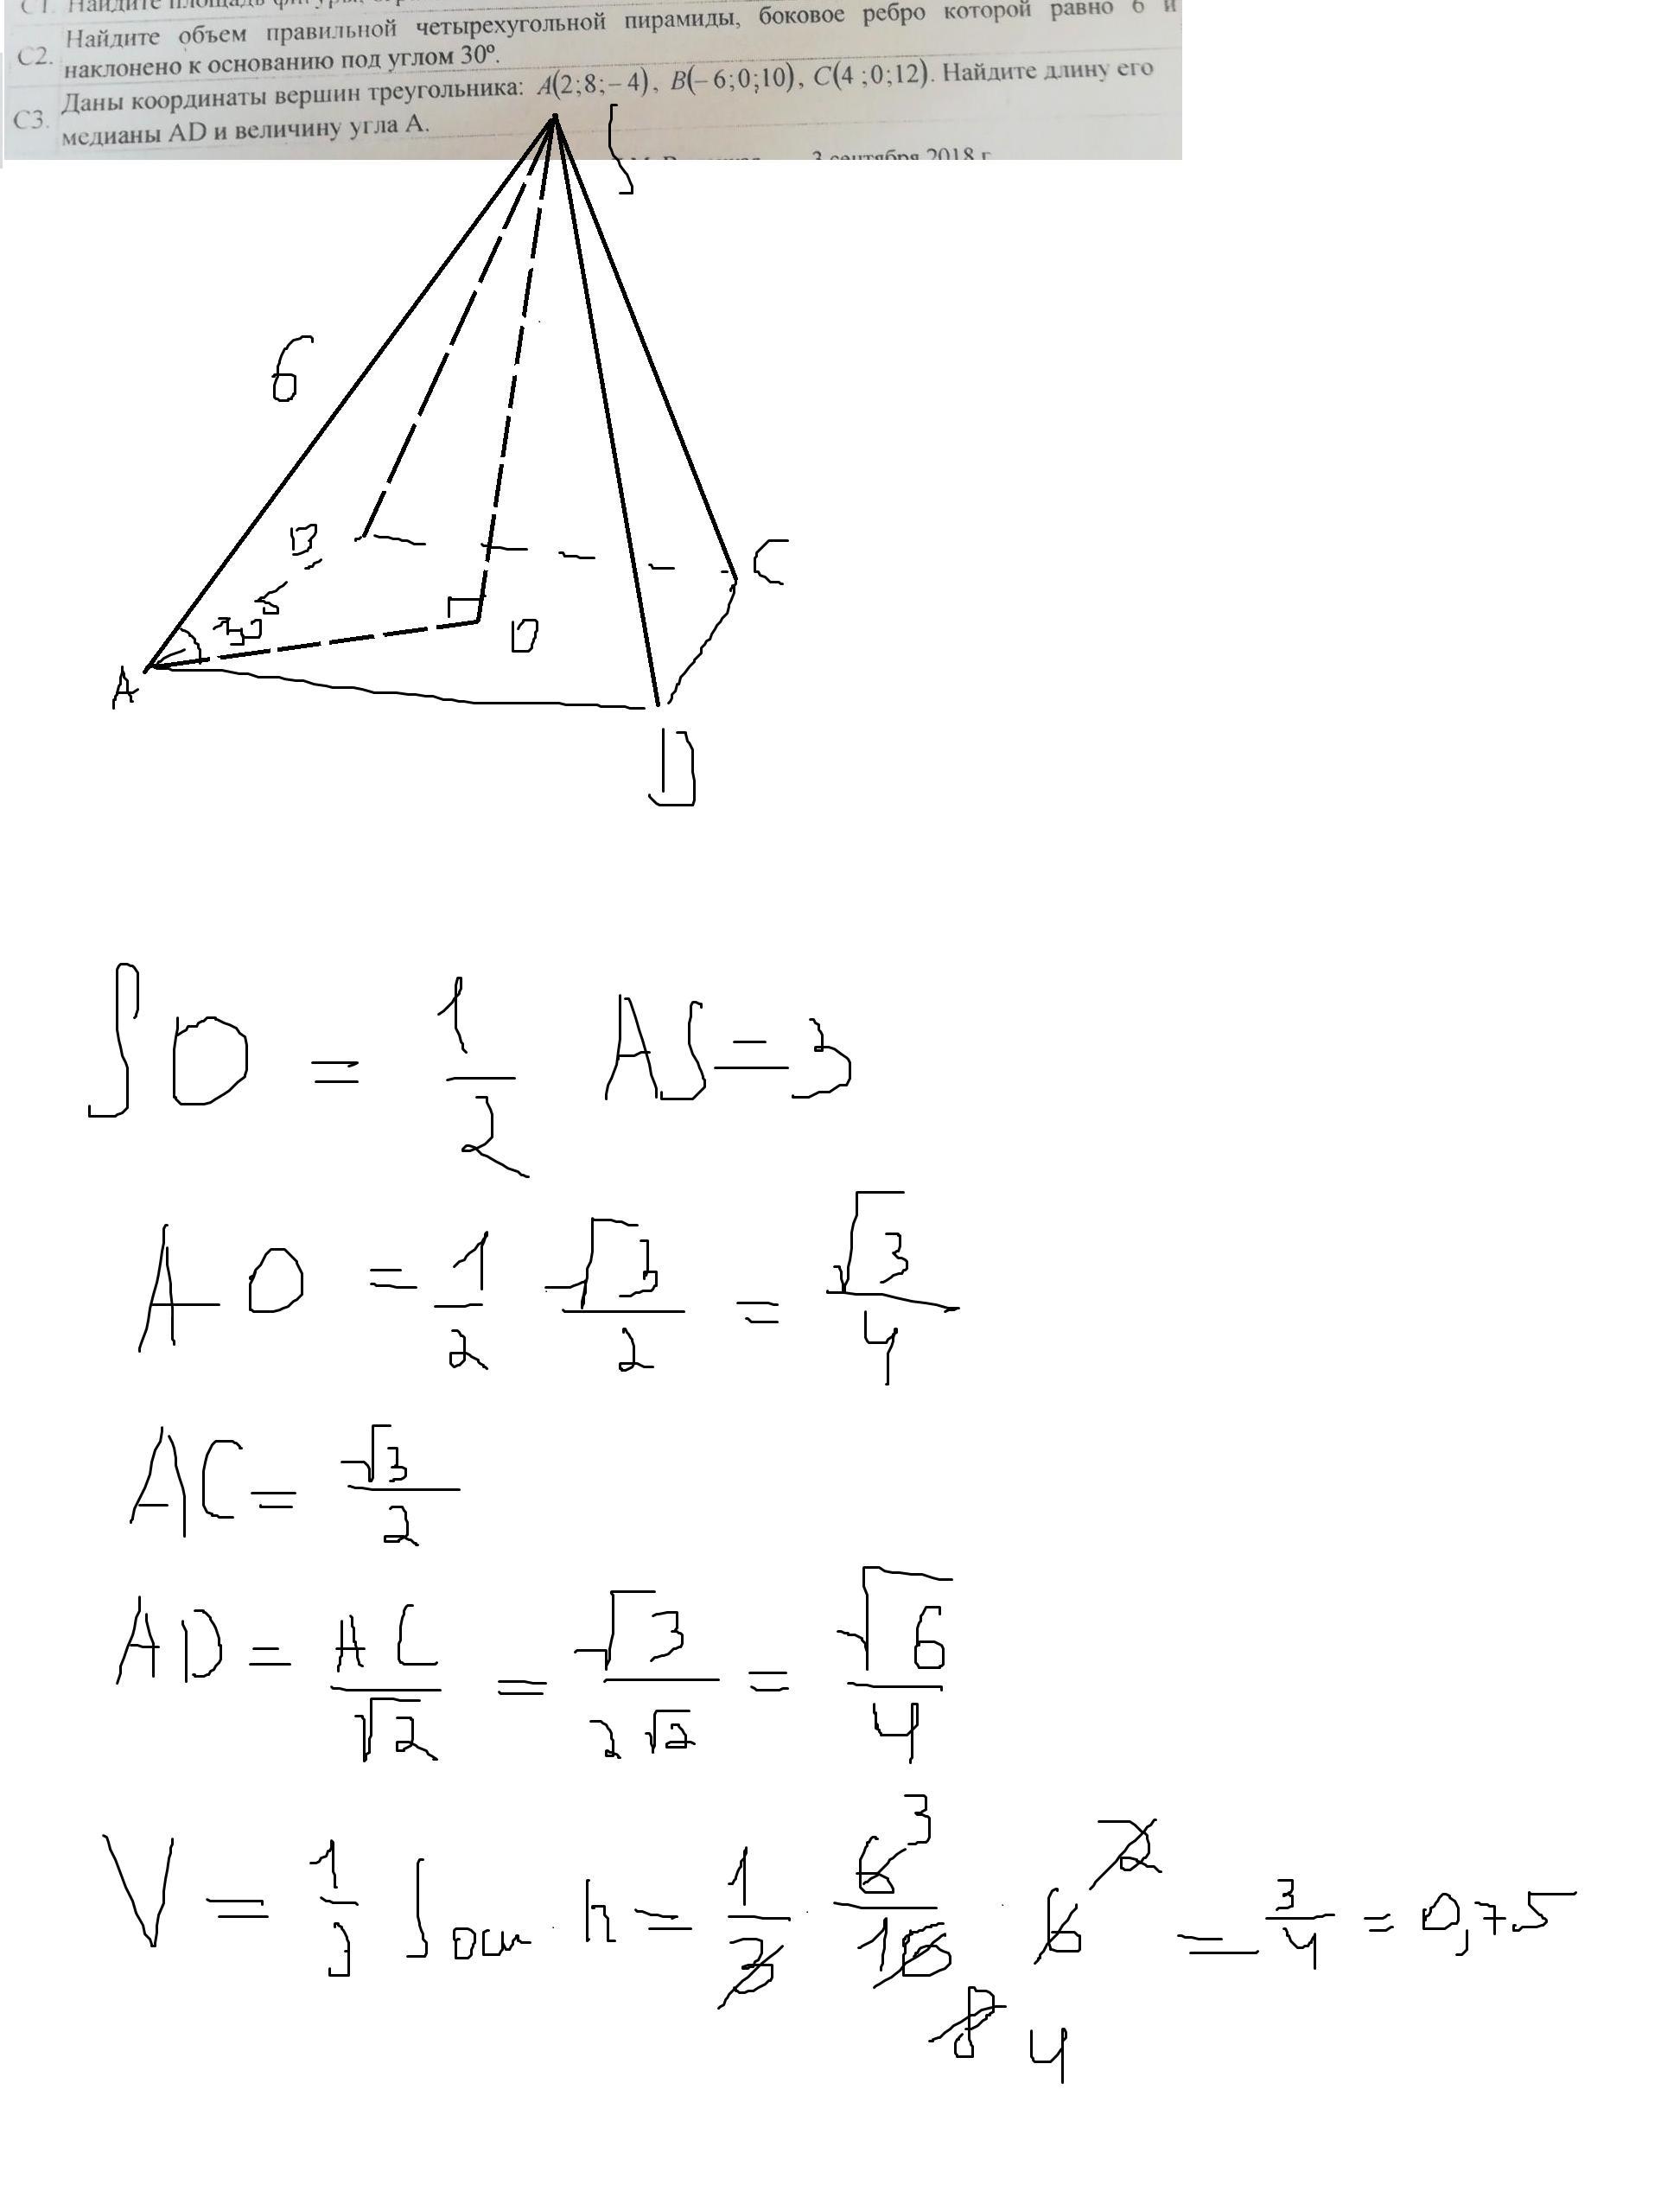 С1. Найдите площадь фигуры,
С2. Найдите объем правильной четырехугольной пирамиды, боковое ребро которой равно 6 и
наклонено к основанию под углом 30°.
С3. Даны координаты вершин треугольника: A(2;8;–4), B(–6;0;10), C(4;0;12). Найдите длину его
медианы AD и величину угла А.
3 сентября 2018 г.
S
6
B
C
30
O
A
D
SO = 1/2 AS = 3
AO = 1/2 √3/2 = √3/4
AC = √3/2
AD = AC/√2 = √3/2√2 = √6/4
V = 1/3 Sосн · h = 1/3 · 6/16 · 6 = 3/4 = 0,75
3
2
8 4